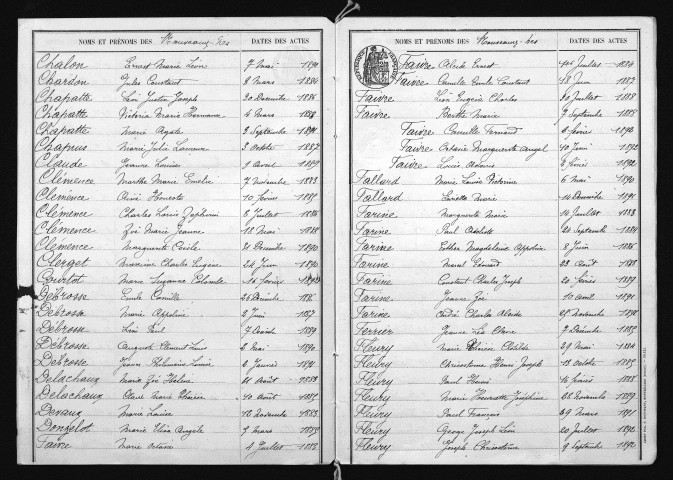 NOMS ET PRÉNOMS DES Nouveaux-nés DATES DES ACTES
Chalon Ernest Marie Léon 7 Mai
Chardon Jules Constant 8 Mars 1886
Chapatte Léon Justin Joseph 20 Décembre 1886
Chapatte Victoria Marie Hermance 4 Mars 1888
Chapatte Marie Agate 2 Septembre 1891
Chapuis Marie Julie Laurence 3 Octobre 1887
Claude Jeanne Louise 9 Avril 1889
Clémence Marthe Marie Emélie 7 Novembre 1883
Clémence Aimé Honoré 10 Février 1885
Clémence Charles Louis Zéphirin 8 Juillet 1886
Clémence Zoé Marie Jeanne 18 Mai 1888
Clémence Marguerite Cécile 21 Décembre 1890
Clerget Maxime Charles Eugène 24 Juin 1890
Courtot Marie Suzanne Colombe 14 Février
Débrosse Emile Camille 26 Décembre
Débrosse Marie Appoline 2 Juin 1887
Débrosse Léon Paul 7 1889
Débrosse Auguste Clément Luc 2 Mai 1891
Débrosse Jeanne Louise 6 Janvier
Delachaux Marie Zoé Hélène 11 Août 1883
Delachaux Claire Marie 20 Août 1885
Devaux Marie Louise 12 Novembre 1883
Donzelot Marie Elisa Angèle 7 Mars 1885
Faivre Marie Octavie 4 Juillet 1883
NOMS ET PRÉNOMS DES Nouveaux-nés DATES DES ACTES
Faivre Alcide Ernest Juillet 1884
Faivre Camille Emile Constant 18 Juin 1887
Faivre Léon Eugène Charles 20 Juillet 1888
Faivre Berthe Marie 7 Septembre 1885
Faivre Camille Fernand 6 Février 1890
Faivre Octavie Marguerite Angel 10 Juin 1892
Faivre Louis 4 Février 1892
Fallard Marie Louise Victorine 6 Mai 1890
Fallard Marie 14 Décembre 1891
Farine Marguerite Marie 14 Juillet 1883
Farine Paul 24 Septembre 1884
Farine Esther Magdeleine Appoline 8 Juin 1886
Farine Marcel Edouard 23 Août 1888
Farine Constant Charles Joseph 20 Février 1889
Farine Jeanne Zoé 10 Août 1891
Farine André Charles Alcide 25 Novembre
Ferrier Jeanne Léa 7 Décembre 1885
Fleury Marie Clotilde 29 Mai 1884
Fleury Chrisostome Henri Joseph 13 Octobre 1885
Fleury Paul Henri 16 Février 1888
Fleury Marie Henriette Joséphine 22 Novembre 1889
Fleury Paul François 29 Mars 1891
Fleury George Joseph Léon 20 Juillet 1892
Fleury Joseph Chrisostome 9 Septembre 1892